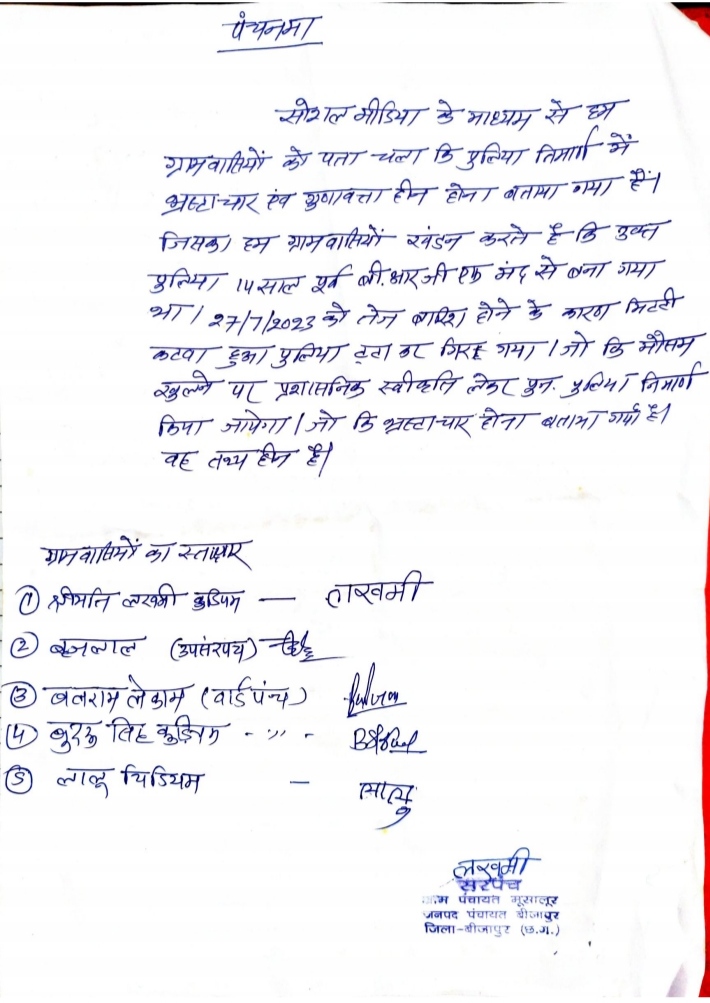 पंचनामा
सोशल मीडिया के माध्यम से हम
ग्रामवासियों को पता चला कि पुलिया निमार्ण में
भ्रष्टाचार एंव गुणवत्ता हीन होना बताया गया है।
जिसका हम ग्रामवासियों खंडन करते है कि उक्त
पुलिया 14 साल पूर्व बी.आर.जी एफ मंद से बना गया
था। 27/7/2023 को तेज बारिश होने के कारण मिटटी
कटवा हुआ पुलिया टुटा कर गिरह गया। जो कि मौसम
खुलने पर प्रशासनिक स्वीकृति लेकर पुन. पुलिया निमार्ण
किया जायेगा। जो कि भ्रष्टाचार होना बताया गया है।
वह तथ्य हीन है।
ग्रामवासियों का स्ताक्षर
① श्रीमति लखमी कुडियम — लाखमी
② बृजलाल (उपसरपंच) —
③ बलराम लेकाम (वार्ड पंच)
④ बुदरू सिंह कुडियम - ,, -
⑤ लालू चिडियम — लालु
लखमी
सरपंच
ग्राम पंचायत मूसालूर
जनपद पंचायत बीजापुर
जिला-बीजापुर (छ.ग.)